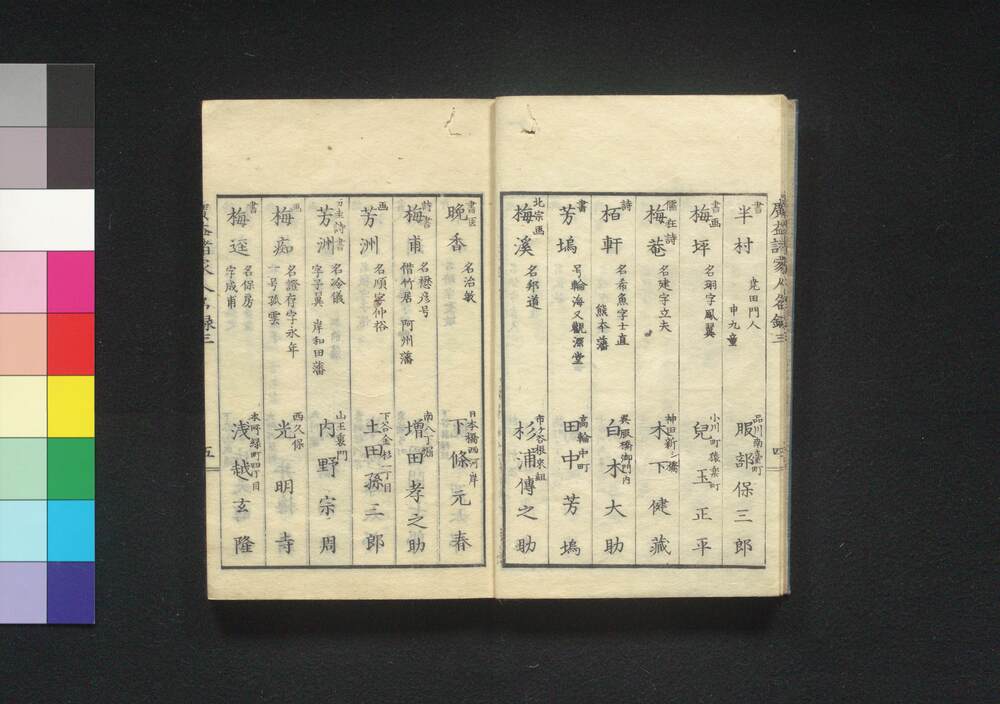 廣益諸家人名録三
四
書
半村
堯田門人
申九童
品川南臺町
服部保三郎
書画
梅坪
名翊字鳳翼
小川町猿楽町
兒玉正平
儒在詩
梅菴
名建字立夫
神田新シ橋
木下健蔵
詩
栢軒
名希魚字士直
熊本藩
呉服橋御門内
白木大助
書
芳塢
号輪海又觀濤堂
高輪中町
田中芳塢
北宗画
梅溪
名邦道
市ケ谷根来組
杉浦傳之助
書医
晩香
名治敏
日本橋西河岸
下條元春
詩書
梅甫
名懋彦号
借竹居 阿州藩
南八丁堀
増田孝之助
画
芳洲
名順字仲裕
下谷金杉一丁目
土田孫三郎
芳洲
名冷儀
字子異 岸和田藩
山王裏門
内野宗周
画
梅痴
名證存字永年
号孤雲
西久保
光明寺
書
梅逕
名保房
字成甫
本所緑町四丁目
浅越玄隆
廣益諸家人名録三
五